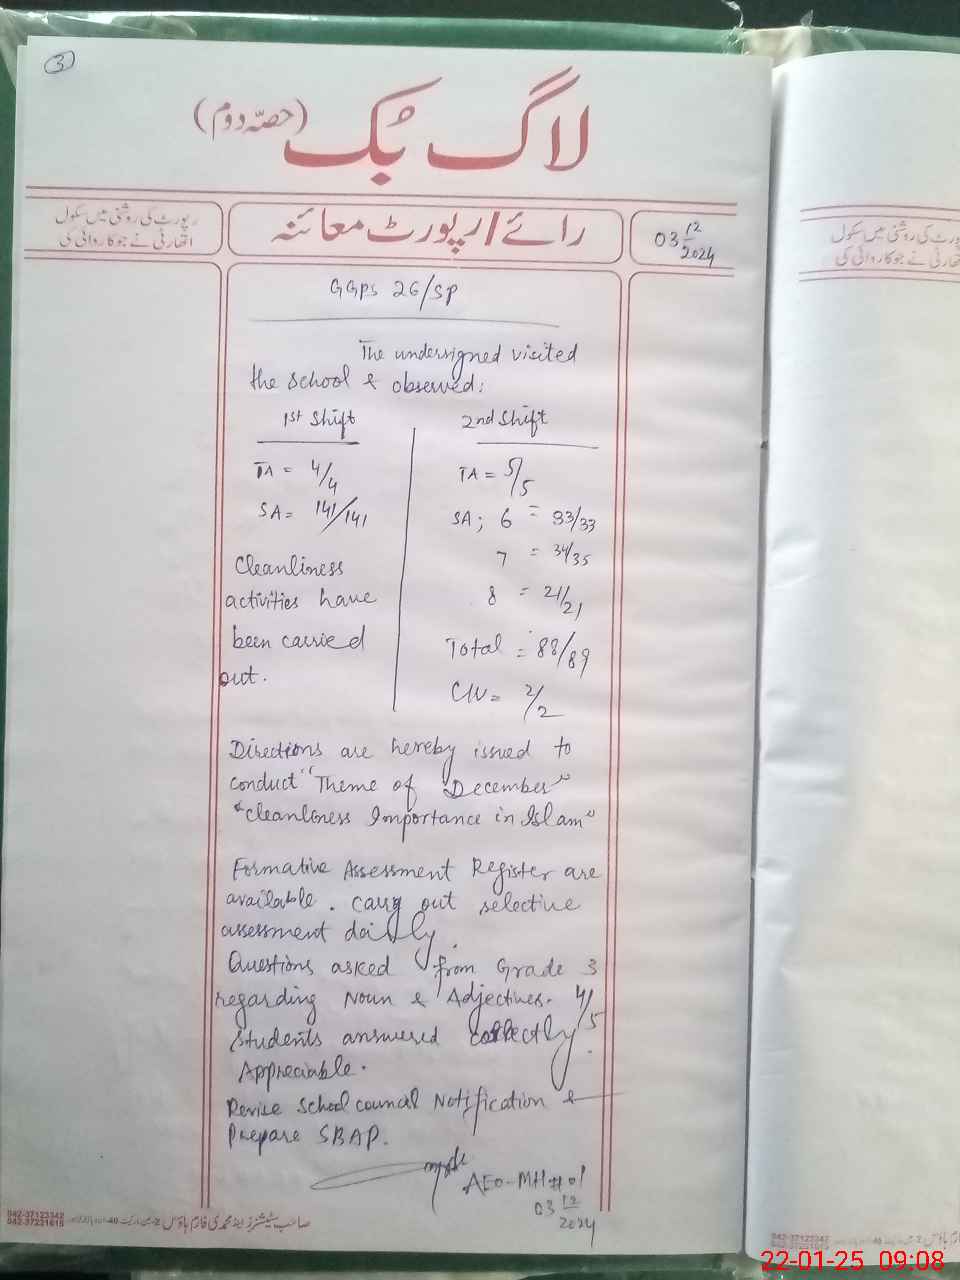 3
لاگ بُک (حصّہ دوم)
رپورٹ کی روشنی میں سکول
اتھارٹی نے جو کاروائی کی
رائے/رپورٹ معائنہ
03 12/2024
GGPS 26/SP
The undersigned visited
the school & observed:
1st Shift
TA = 4/4
SA = 141/141
Cleanliness
activities have
been carried
out.
2nd Shift
TA = 5/5
SA; 6 = 33/33
7 = 34/35
8 = 21/21
Total = 88/89
CW = 2/2
Directions are hereby issued to
conduct "Theme of December"
"Cleanliness Importance in Islam"
Formative Assessment Register are
available. carry out selective
assessment daily.
Questions asked from Grade 3
regarding Noun & Adjectives. 4/5
Students answered correctly.
Appreciable.
Revise School council Notification &
Prepare SBAP.
AEO-MH#01
03 12/2024
042-37123342
042-37231615
رپورٹ کی روشنی میں سکول
اتھارٹی نے جو کاروائی کی
042-37123342
22-01-25 09:08